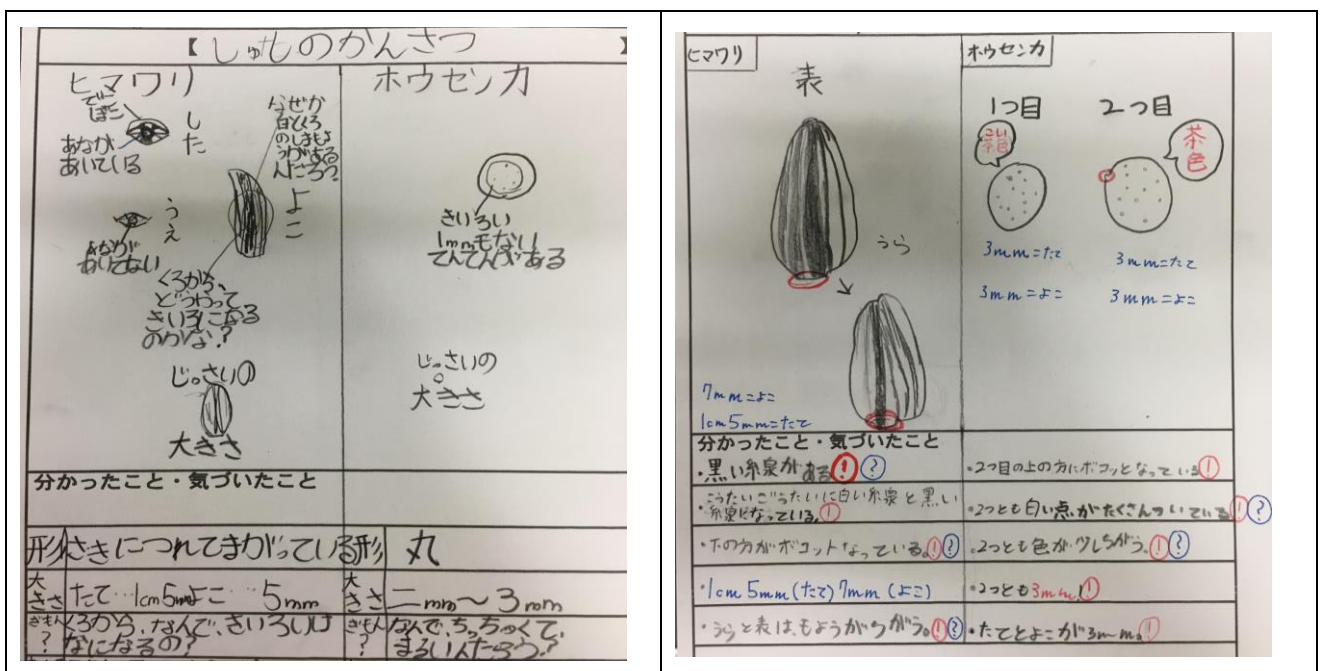 【しゅしのかんさつ】
ヒマワリ
でこ
ぼこ
あなが
あいている
した
なぜか
白とくろ
のしまもよ
うがある
んだろう。
よこ
うえ
あなが
あいてない
くろから、
どうやって
きいろになる
のかな?
じっさいの
大きさ
ホウセンカ
きいろい
1mmもない
てんてんがある
じっさいの
大きさ
分かったこと・気づいたこと
形 さきにつれてまがっている
形 丸
大きさ たて…1cm5mmよこ…5mm
大きさ 二mm~3mm
ぎもん? くろから、なんで、きいろいは
なになるの?
ぎもん? なんで、ちっちゃくて、
まるいんだろう?
ヒマワリ
表
うら
7mm=よこ
1cm5mm=たて
ホウセンカ
1つ目
2つ目
こい
茶色
茶
色
3mm=たて
3mm=よこ
3mm=たて
3mm=よこ
分かったこと・気づいたこと
・黒い線がある!?
・こうたいごうたいに白い線と黒い
線になっている。!
・下の方がボコットなっている。!?
・1cm5mm(たて)7mm(よこ)
・うらと表は、もようがちがう。!?
・2つ目の上の方にボコッとなっている!
・2つとも白い点がたくさんついている!?
・2つとも色が少しちがう。!?
・2つとも3mm!!
・たてとよこが3mm。!